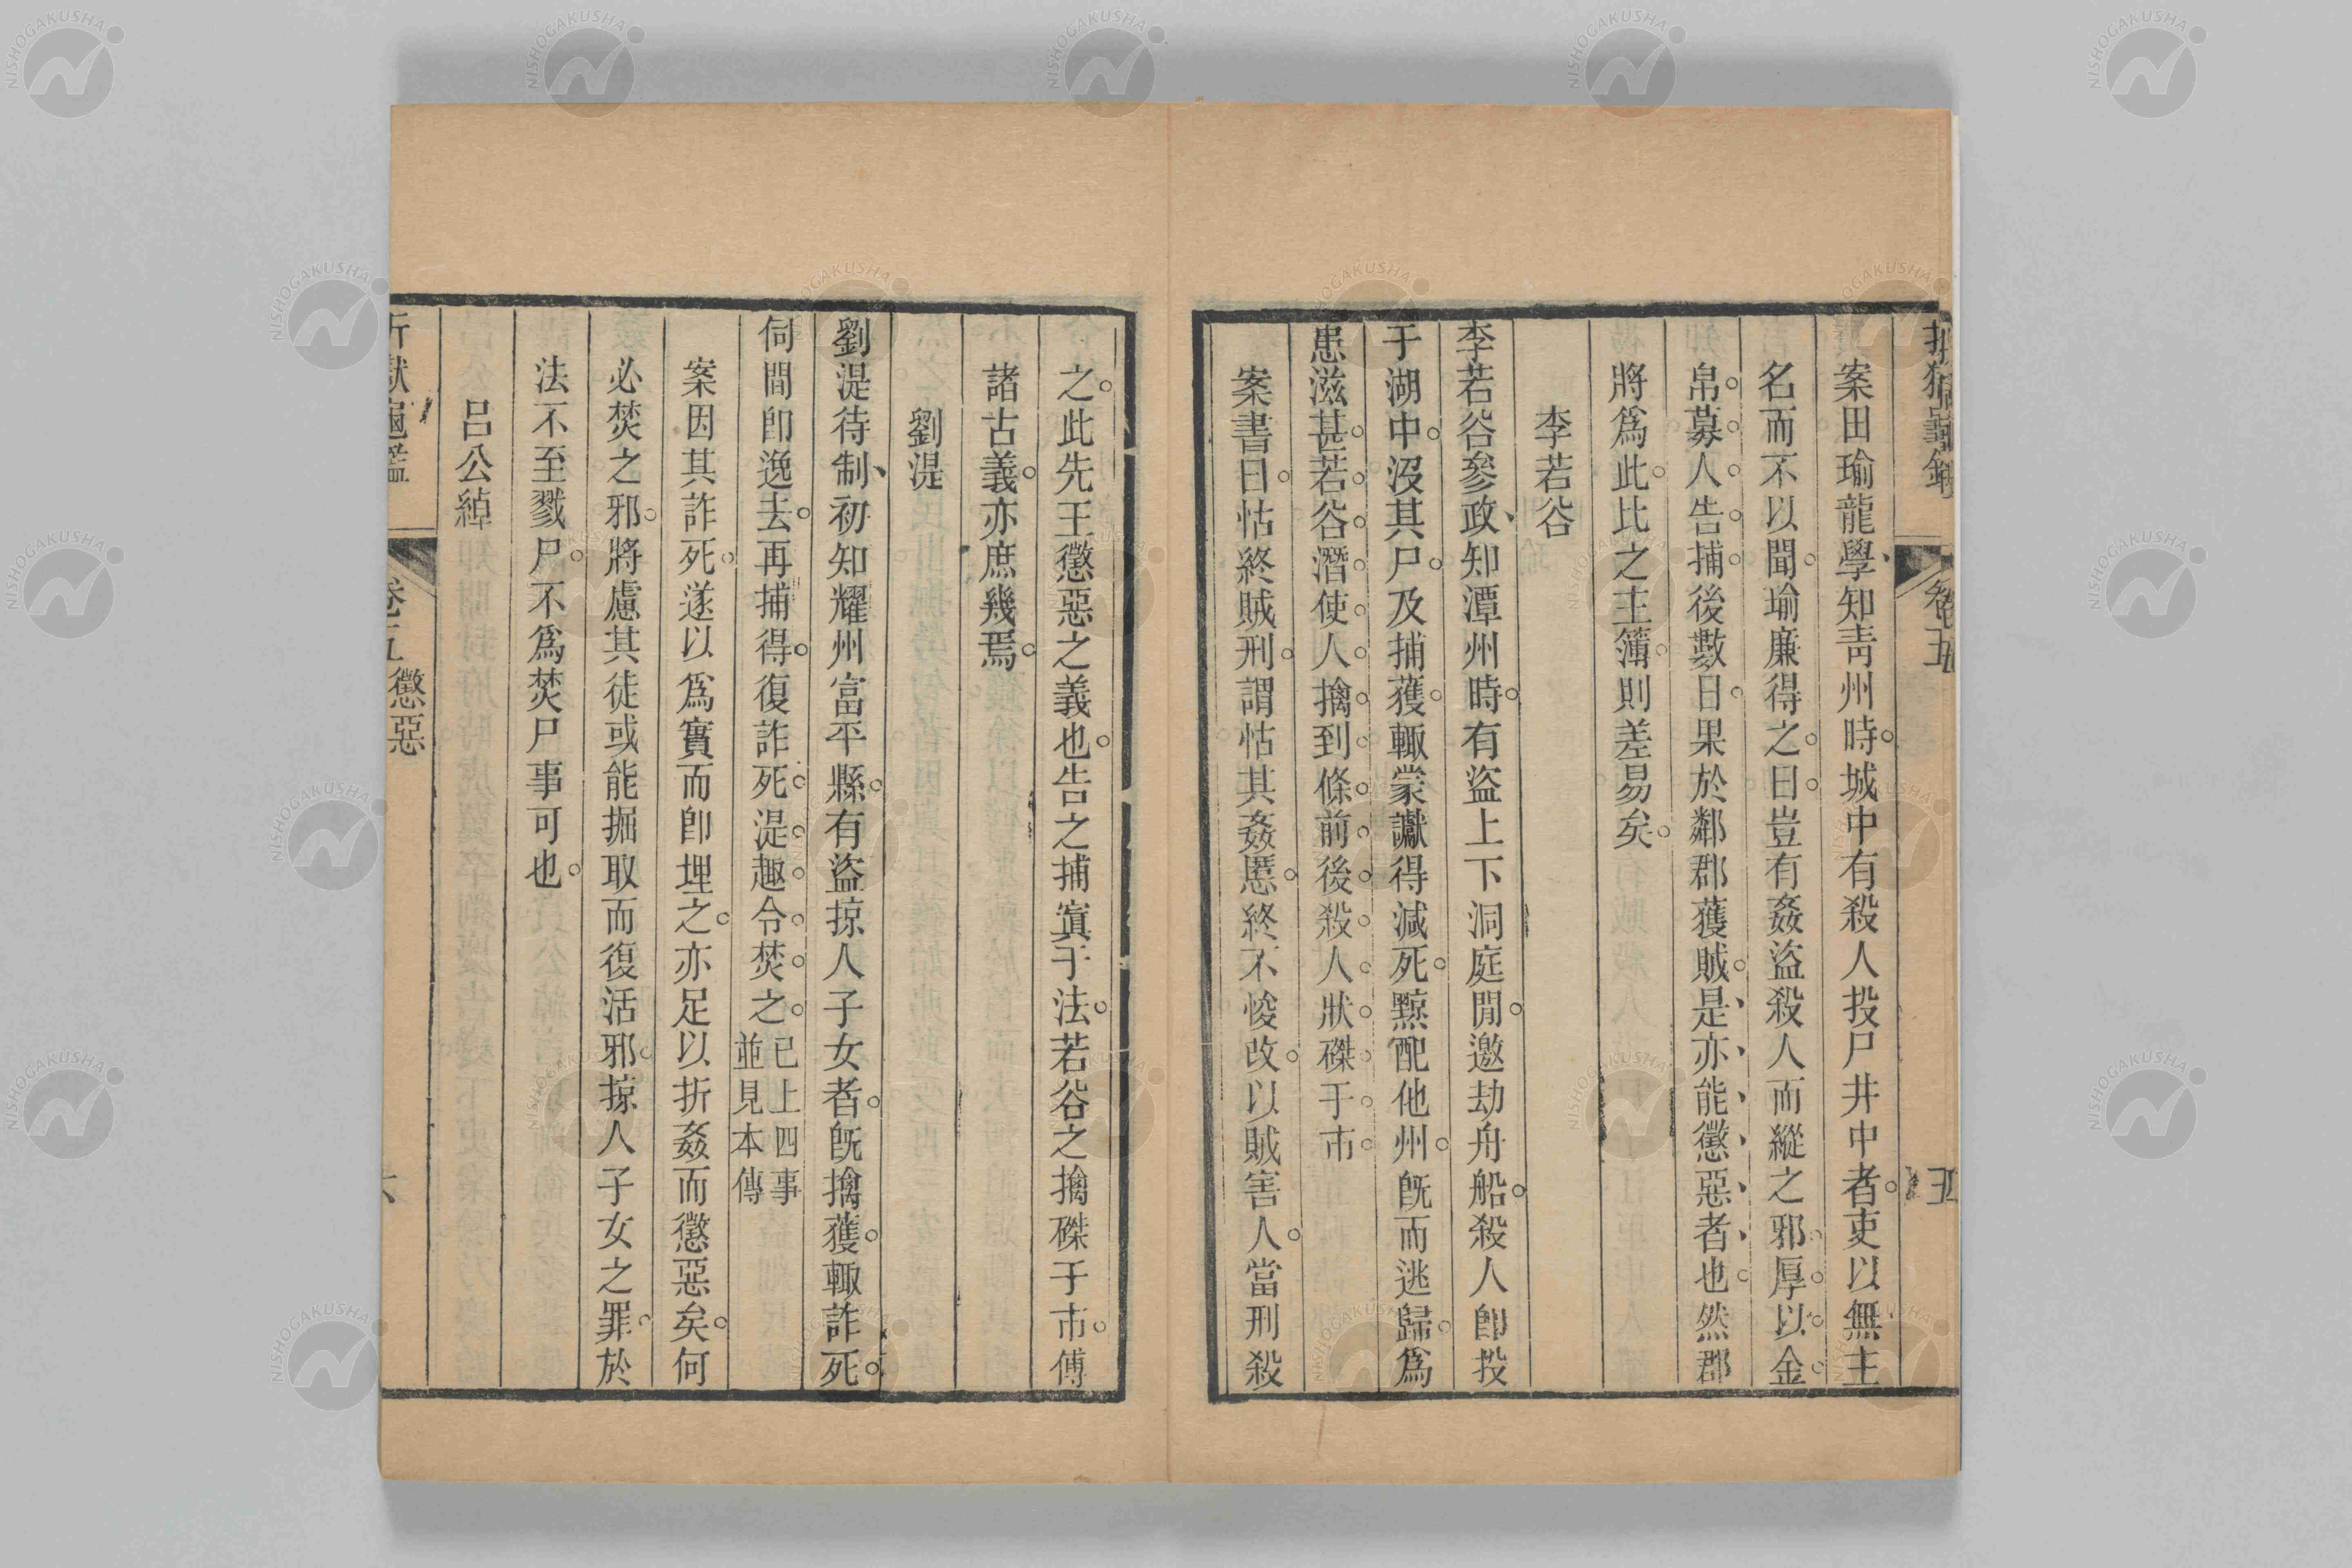 折獄龜鑑
卷五
五
案田瑜龍學、知青州時。城中有殺人投尸井中者。吏以無主
名而不以聞。瑜廉得之。曰。豈有姦盜殺人而縱之邪。厚。以。金。
帛。募。人。告。捕。後數日。果於鄰郡獲賊。是、亦、能、懲、惡、者、也。然郡
將爲此。比之主簿。則差易矣。
李若谷
李若谷參政、知潭州時。有盜上下洞庭閒。邀劫舟船。殺人卽投
于湖中。沒其尸。及捕獲。輒蒙讞得減死。黥配他州。旣而逃歸。爲
患滋甚。若。谷。潛。使。人。擒。到。條。前。後。殺。人。狀。磔。于。市。
案書曰。怙終賊刑。謂怙其姦慝。終不悛改。以賊害人。當刑殺
之。此先王懲惡之義也。告之捕寘于法。若谷之擒磔于市。傅
諸古義。亦庶幾焉。
劉湜
劉湜待制、初知耀州富平縣。有盜掠人子女者。旣擒獲。輒詐死。
伺閒卽逸去。再捕得。復詐死。湜。趣。令。焚。之。已上四事並見本傳
案因其詐死。遂以爲實而卽埋之。亦足以折姦而懲惡矣。何
必焚之邪。將慮其徒或能掘取而復活邪。掠人子女之罪。於
法不至戮尸。不爲焚尸事可也。
呂公綽
折獄龜鑑
卷五 懲惡
六
NISHOGAKUSHA